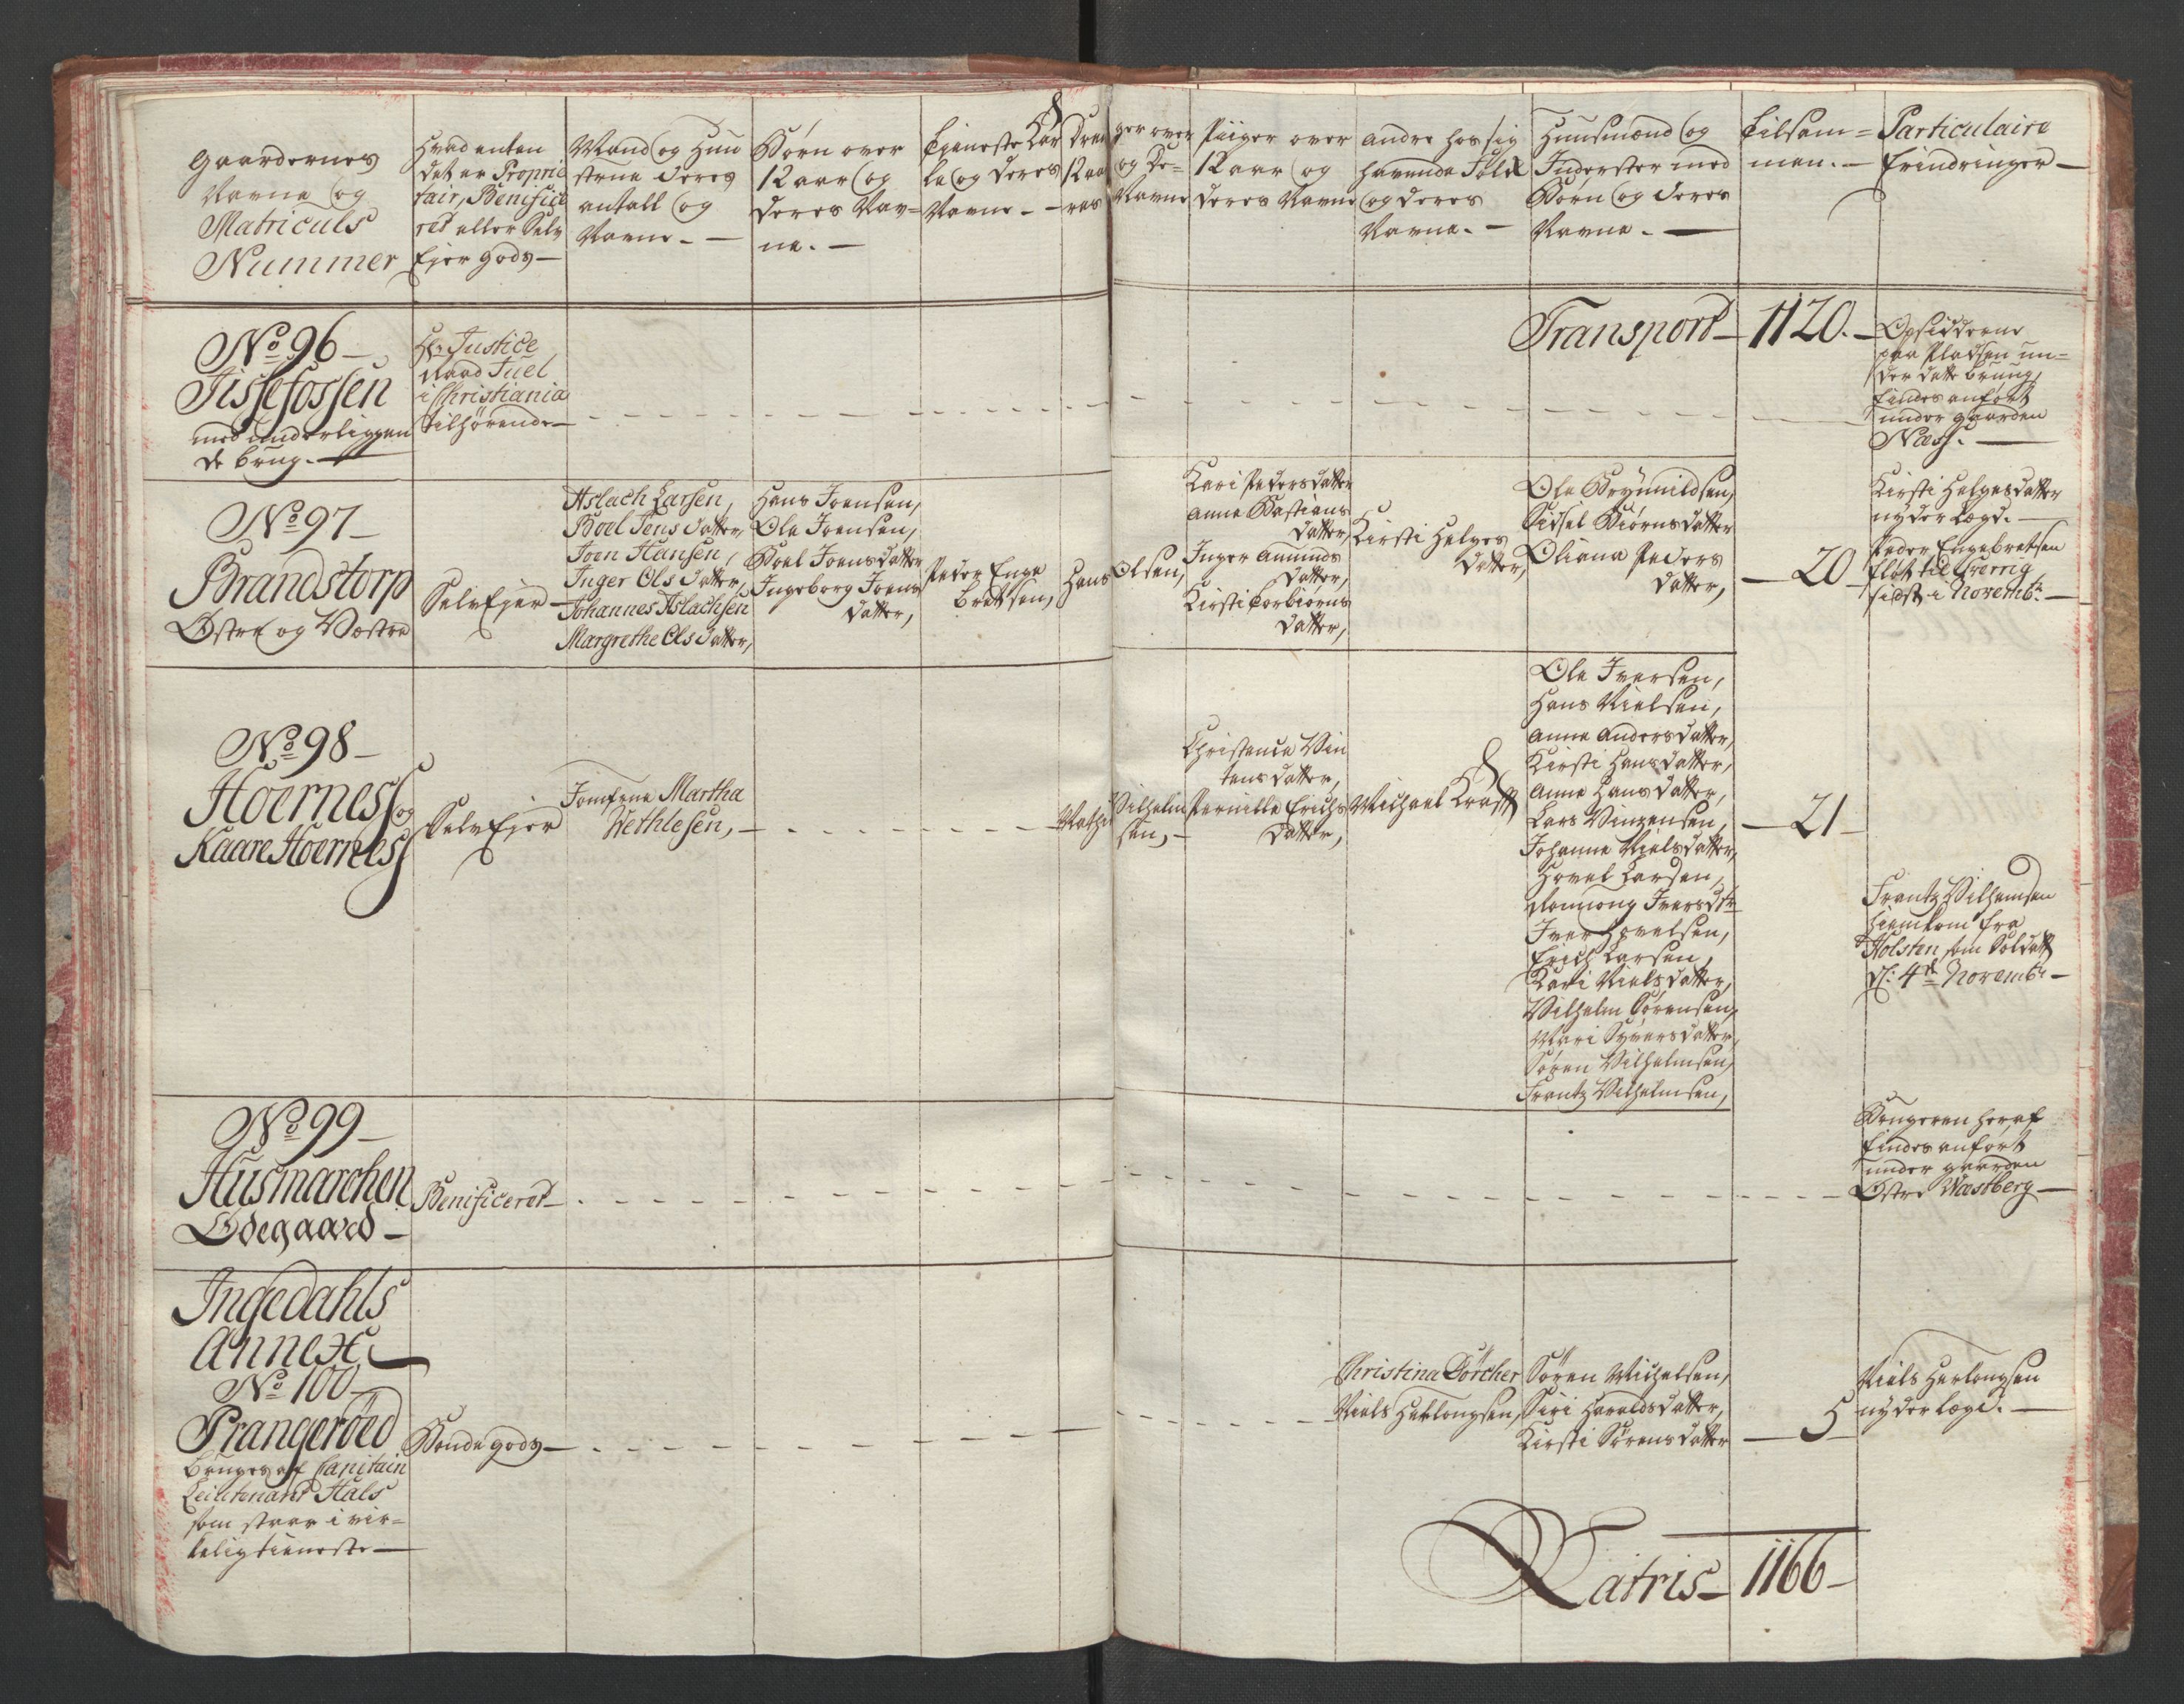 Gaardernes
Navne og
Matriculs
Nummer
Hvad enten
det er Proprie
tair, Benifice
ret eller Selv
Ejer Gods —
Mand og Hu
strue deres
antall og
Navne. —
Børn over
12 aar og
deres Nav=
ne. —
Tieneste Kar
le og deres
Navne. —
Dren
12 aa
res
ger over
og De=
Navne
Piiger over
12 aar og
deres Navne
Andre hos sig
havende Folk
og deres
Navne. —
Huusmænd og
Inderster med
Børn og deres
Navne. —
Tilsam=
men. —
Particulaire
Erindringer —
Transport — 1120. —
No 96 —
Tissefossen
med underliggen
de brug. —
Hr. Justice
Raad Juel
i Christiania
tilhørende —
Opsidderne
paa Pladsen un=
der dette brug,
findes anført
under gaarden
Næss. —
No 97 —
Brandstorp
Østre og Vestre
SelvEjer —
Aslach Larsen,
Boel Jens datter,
Joen Hansen,
Inger Ols datter,
Johannes Aslachsen
Margrethe Ols datter,
Hans Joensen,
Ole Joensen,
Boel Joensdatter
Ingeborg Joens
datter,
Peder Enge
bretsen,
Hans Olsen,
Kari Pedersdatter
Anne Bastians
datter,
Inger Amunds
datter,
Kirsti Torbiørns
datter,
Kirsti Helges
datter,
Ole Brynnildsen,
Sidsel Biørnsdatter
Oliana Peders
datter,
— 20 —
Kirsti Helgesdatter
nyder Lægd. —
Peder Engebretsen
fløt til Sverrig
sidst i Novembr. —
No 98 —
Hoerness og
Kaare Hoerness
SelvEjer
Jomfrue Martha
Wethlesen, —
Mathis Vilhelm
sen, —
Christence Vin
tensdatter,
Pernille Erichs
datter,
Michael Krafft
Ole Iversen,
Hans Nielsen,
Anne Andersdatter,
Kirsti Hansdatter,
Anne Hansdatter,
Lars Vinzensen,
Johanne Nielsdatter,
Hovel Larsen,
Ronnong Iversdtr
Iver Hovelsen,
Erich Larsen,
Kari Nielsdatter,
Vilhelm Sørensen,
Mari Syversdatter,
Søren Vilhelmsen,
Frantz Vilhelmsen,
— 21 —
Frantz Vilhemsen
hiemkom fra
Holsten som Soldatt
d: 4de Novembr —
No 99 —
Husmarchen
Ødegaard —
Benificeret —
Brugeren heraf
findes anført
under gaarden
Østre Wæstberg —
Ingedahls
Annex
No 100 —
Prangerøed
bruges af Capitain
Leiutenant Hals
som staar i vir=
kelig tieneste —
Bondegods —
Christina Dörcher
Niels Herlougsen,
Søren Michelsen,
Siri Haraldsdatter,
Kirsti Sørensdatter
— 5
Niels Herlougsen
nyder Lægd. —
Latris — 1166 —